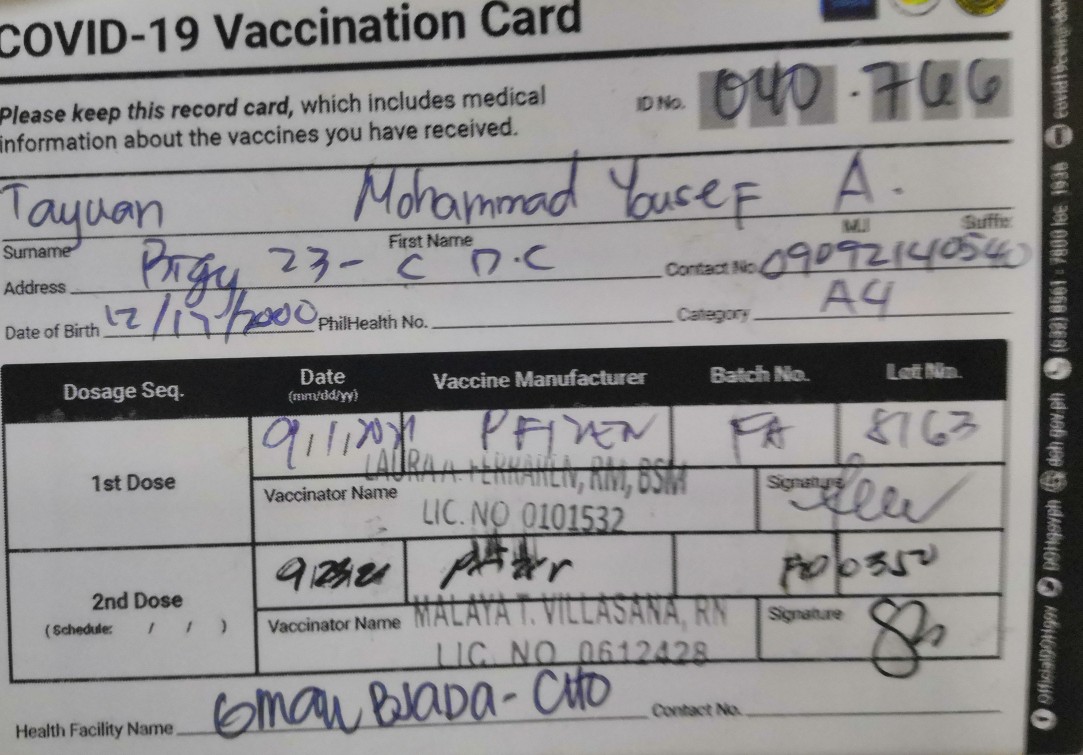 COVID-19 Vaccination Card
Please keep this record card, which includes medical
information about the vaccines you have received.
ID No. 040-766
Tayuan Mohammad Yousef A.
Surname First Name M.I Suffix
Address Brgy 23-C D.C Contact No. 09092140540
Date of Birth 12/17/2000 PhilHealth No. Category A4
Dosage Seq. Date Vaccine Manufacturer Batch No. Lot No.
(mm/dd/yy)
1st Dose 9/1/2021 PFIZER FA 8163
Vaccinator Name LAURA A. FERRAREN, RM, BSM Signature
LIC. NO 0101532
2nd Dose 0350
(Schedule: / / )
Vaccinator Name MALAYA T. VILLASANA, RN Signature
LIC. NO 0612428
Health Facility Name Gmall Bajada - CHO Contact No.
OfficialDOHgov DOHgovph doh.gov.ph (632) 8651-7800 loc 1936